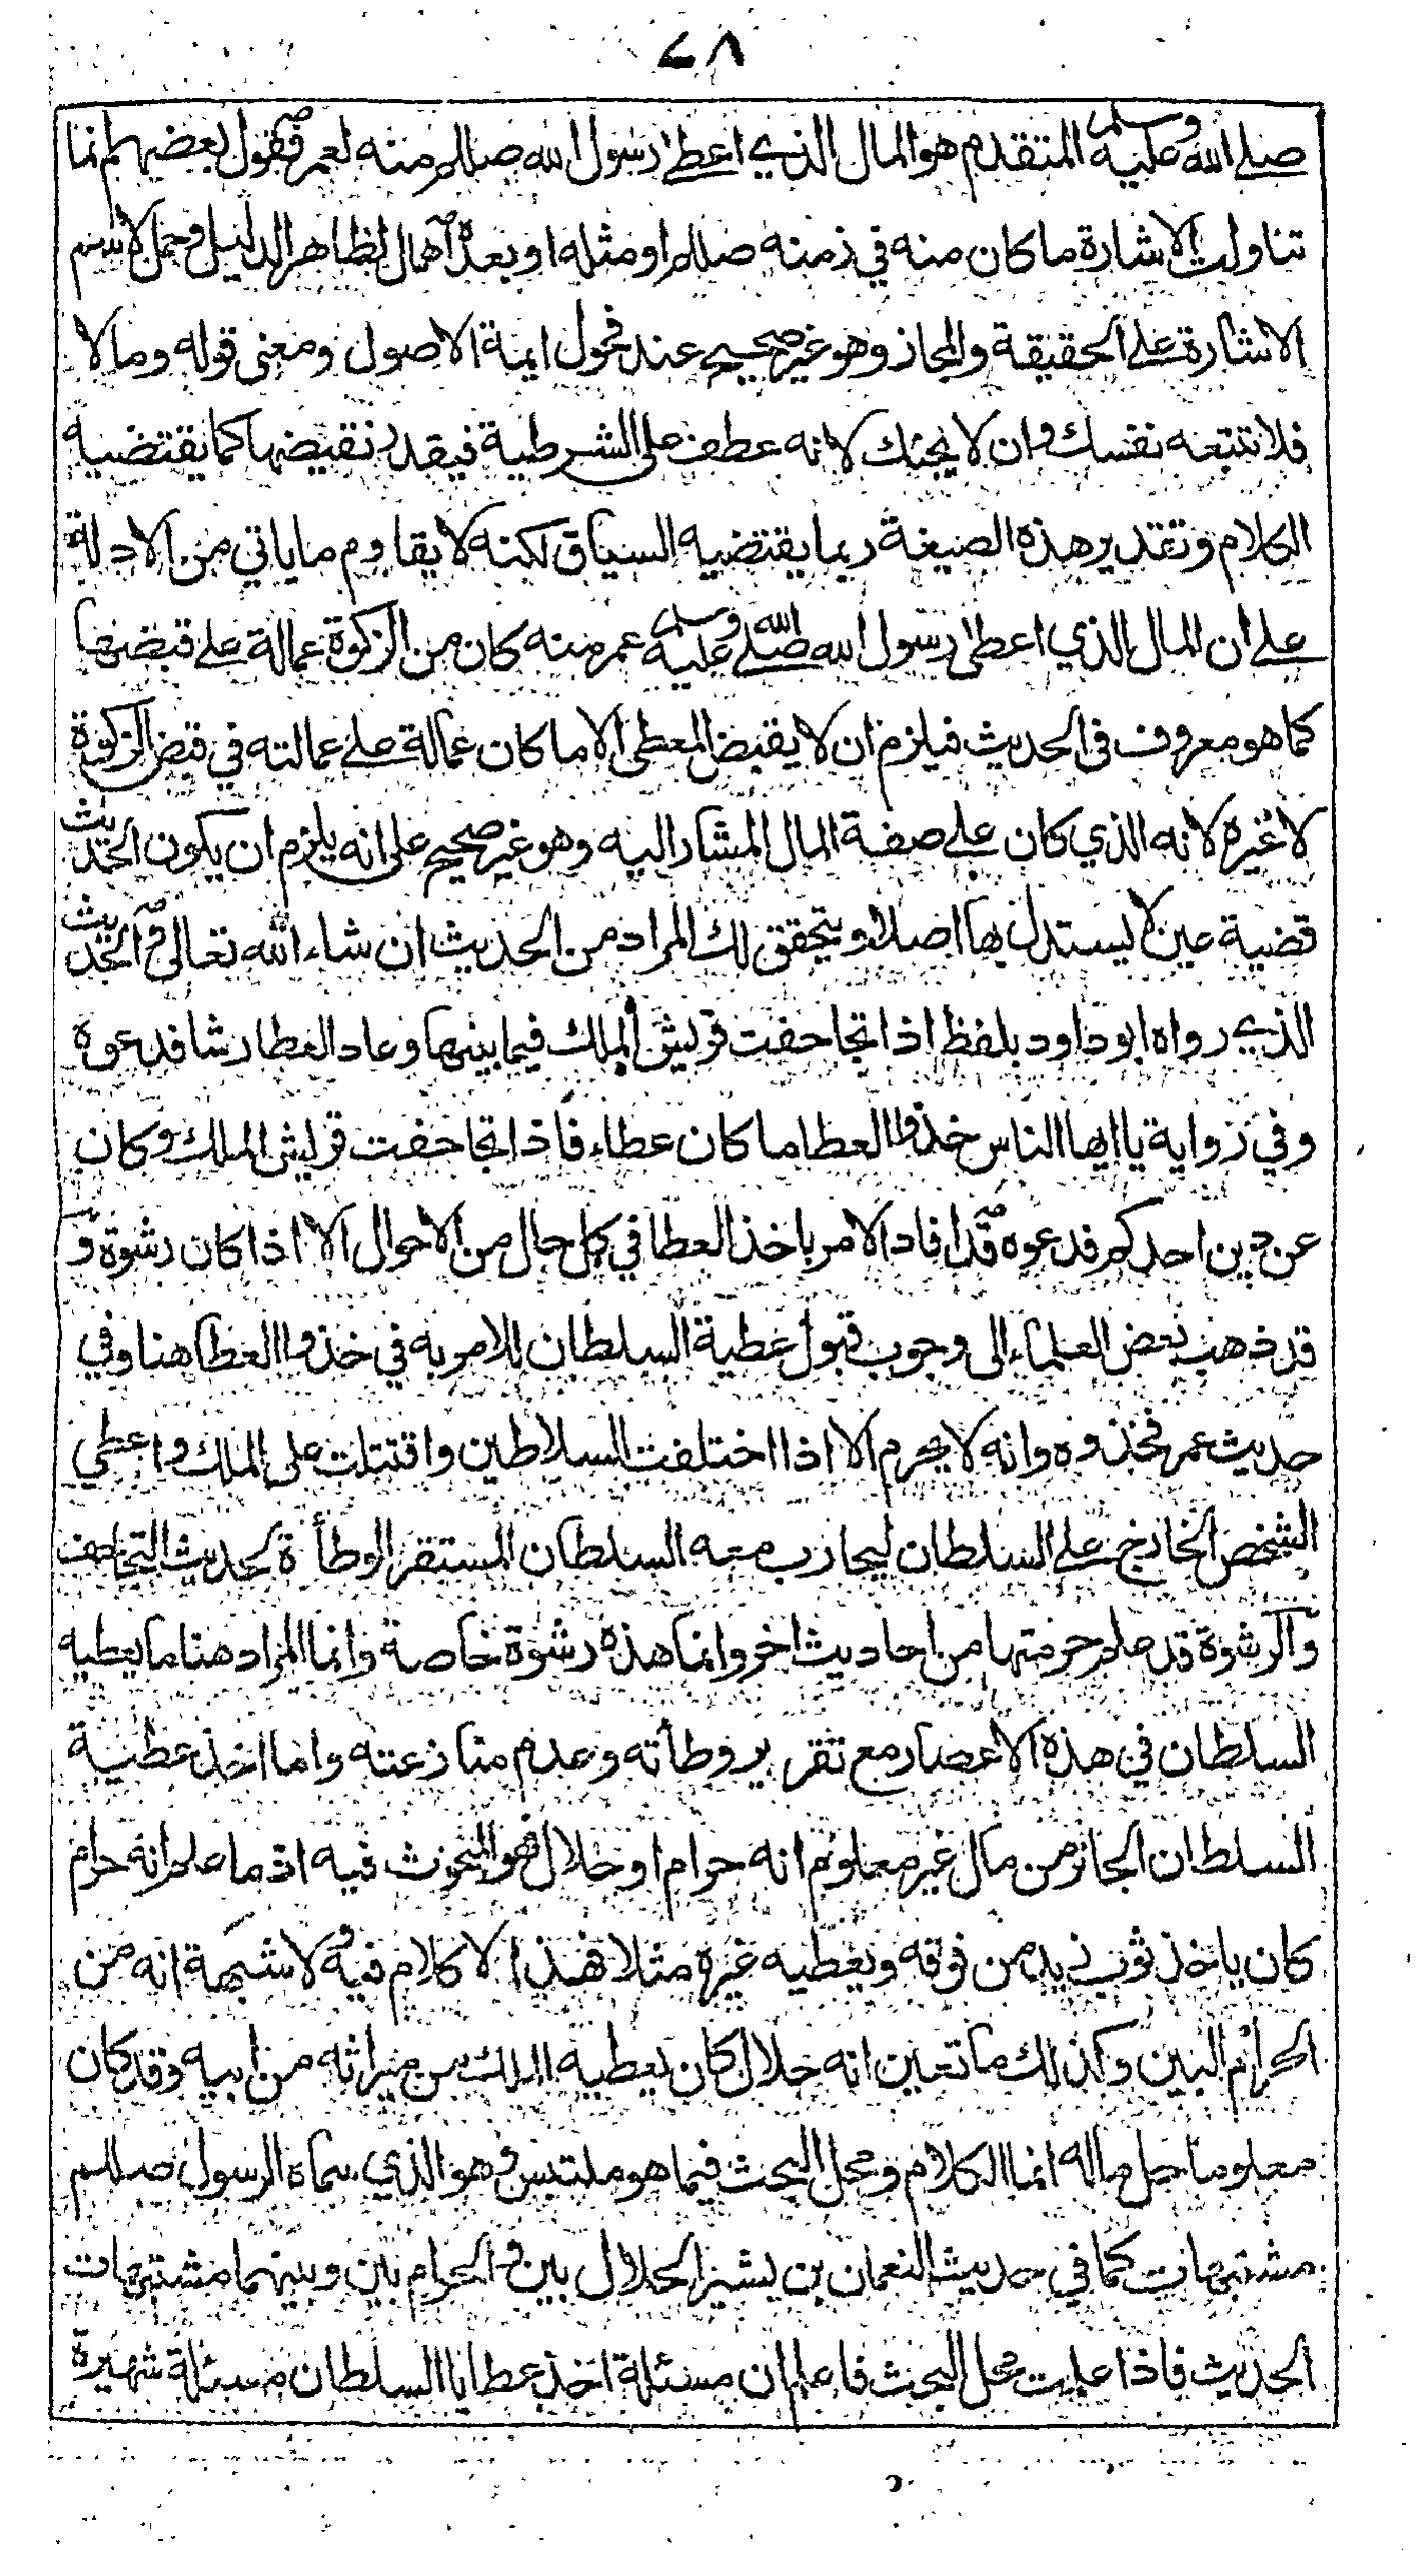 ٧٨
صلى الله عليه وسلم المتقدم هو المال الذي اعطى رسول الله صللم منه لعمر فقول بعضهم انما
تناولت الاشارة ما كان منه في زمنه صللم او مثله او بعده اهمال لظاهر الدليل وحمل لاسم
الاشارة على الحقيقة والمجاز وهو غير صحيح عند فحول ايمة الاصول ومعنى قوله وما لا
فلا تتبعه نفسك وان لا يجئك لانه عطف على الشرطية فيقدر نقيضها كما يقتضيه
الكلام وتقدير هذه الصيغة ربما يقتضيه السياق لكنه لا يقاوم ما ياتي من الادلة
على ان المال الذي اعطى رسول الله صلى الله عليه وسلم عمر منه كان من الزكوة عمالة على قبضها
كما هو معروف في الحديث فيلزم ان لا يقبض المعطى الا ما كان عمالة على عمالته في قبض الزكوة
لا غيره لانه الذي كان على صفة المال المشار اليه وهو غير صحيح على انه يلزم ان يكون الحديث
قضية عين لا يستدل بها اصلا ويتحقق لك المراد من الحديث ان شاء الله تعالى في الحديث
الذي رواه ابو داود بلفظ اذا تجاحفت قريش الملك فيما بينها وعاد العطا رشا فدعوه
وفي رواية يا ايها الناس خذوا العطا ما كان عطاء فاذا تجاحفت قريش الملك وكان
عن دين احدكم فدعوه فقد افاد الامر باخذ العطا في كل حال من الاحوال الا اذا كان رشوة و
قد ذهب بعض العلماء الى وجوب قبول عطية السلطان للامر به في خذوا العطا هنا وفي
حديث عمر فخذوه وانه لا يحرم الا اذا اختلفت السلاطين واقتتلت على الملك واعطى
الشخص الخارج على السلطان ليحارب معه السلطان المستقر الوطأة كحديث التجاحف
والرشوة قد علم حرمتها من احاديث اخر وانما هذه رشوة خاصة وانما المراد هنا ما يعطيه
السلطان في هذه الاعصار مع تقرير وطأته وعدم منازعته واما اخذ عطية
السلطان الجائر من مال غير معلوم انه حرام او حلال فهو المبحوث فيه اذ ما علم انه حرام
كان ياخذ ثوب زيد من فوقه ويعطيه غيره مثلا فهذا لا كلام فيه لا شبهة انه من
الحرام البين وكذلك ما تعين انه حلال كان يعطيه الملك من ميراثه من ابيه وقد كان
معلوما حل ماله انما الكلام ومحل البحث فيما هو ملتبس وهو الذي سماه الرسول صللم
مشتبهات كما في حديث النعمان بن بشير الحلال بين والحرام بين وبينهما مشتبهات
الحديث فاذا علمت محل البحث فاعلم ان مسئلة اخذ عطايا السلطان مسئلة شهيرة